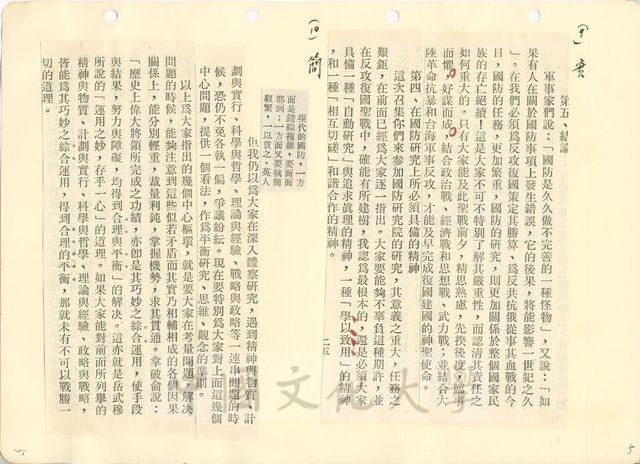 (甲) 實
第五、結論
軍事家們說：「國防是久久做不完善的一種怪物」，又說：「如
果有人在關於國防事項上發生錯誤，它的後果，將能影響一世紀之久
」。在我們必須爲反攻復國策定其勝算、爲反共抗俄從事其血戰的今
日，國防的任務，更加繁重，國防的研究，則更加關係於整個國家民
族的存亡絕續！這是大家不可不特別了解其嚴重性，而認清其責任之
如何重大的。只有大家能及此聖戰前夕，精思熟慮，先揆後度，臨事
而懼，好謀而成，結合政治戰、經濟戰和思想戰、武力戰；並結合大
陸革命抗暴和台海軍事反攻，才能及早完成復國建國的神聖使命。
第四、在國防研究上所必須具備的精神
這次召集你們來參加國防研究院的研究，其意義之重大，任務之
艱鉅，在前面已經爲大家逐一指出。大家要能夠不辜負這種期許，並
在反攻復國聖戰中，確能有所建樹，我認爲最根本的，還是必須大家
具備一種「自動研究」與追求眞理的精神，一種「學以致用」的精神
，和一種「相互切磋」和諧合作的精神。
二五
簡
現代的國防，一方
面是錯綜複雜，要面面
都到；一方面又要執簡
馭繁，一以貫之。英人
但我仍以爲大家在深入體察研究，遇到精神與物質、計
劃與實行、科學與哲學、理論與經驗、戰略與政略等一連串問題的時
候，恐仍不免各執一偏，爭議紛紜。現在要特別爲大家對上面這幾個
中心問題，提供一個看法，作爲平衡研究、思維、觀念的準則。
以上爲大家指出的幾個中心樞軸，就是要大家在考量問題、解決
問題的時候，能夠注意到這些似若矛盾而其實乃相輔相成的各個因果
關係上，能分別輕重，裁量利鈍，掌握機勢，求其貫通。拿破侖說：
「歷史上偉大將領所完成之功績，亦卽是其巧妙之綜合運用，使手段
與結果，努力與障礙，均得到合理與平衡」的解決。這亦就是岳武穆
所說的「運用之妙，存乎一心」的道理。如果大家能對前面所列舉的
精神與物質、計劃與實行、科學與哲學、理論與經驗、政略與戰略，
皆能爲其巧妙之綜合運用，得到合理的平衡，那就未有不可以戰勝一
切的道理。
中國文化大學
5